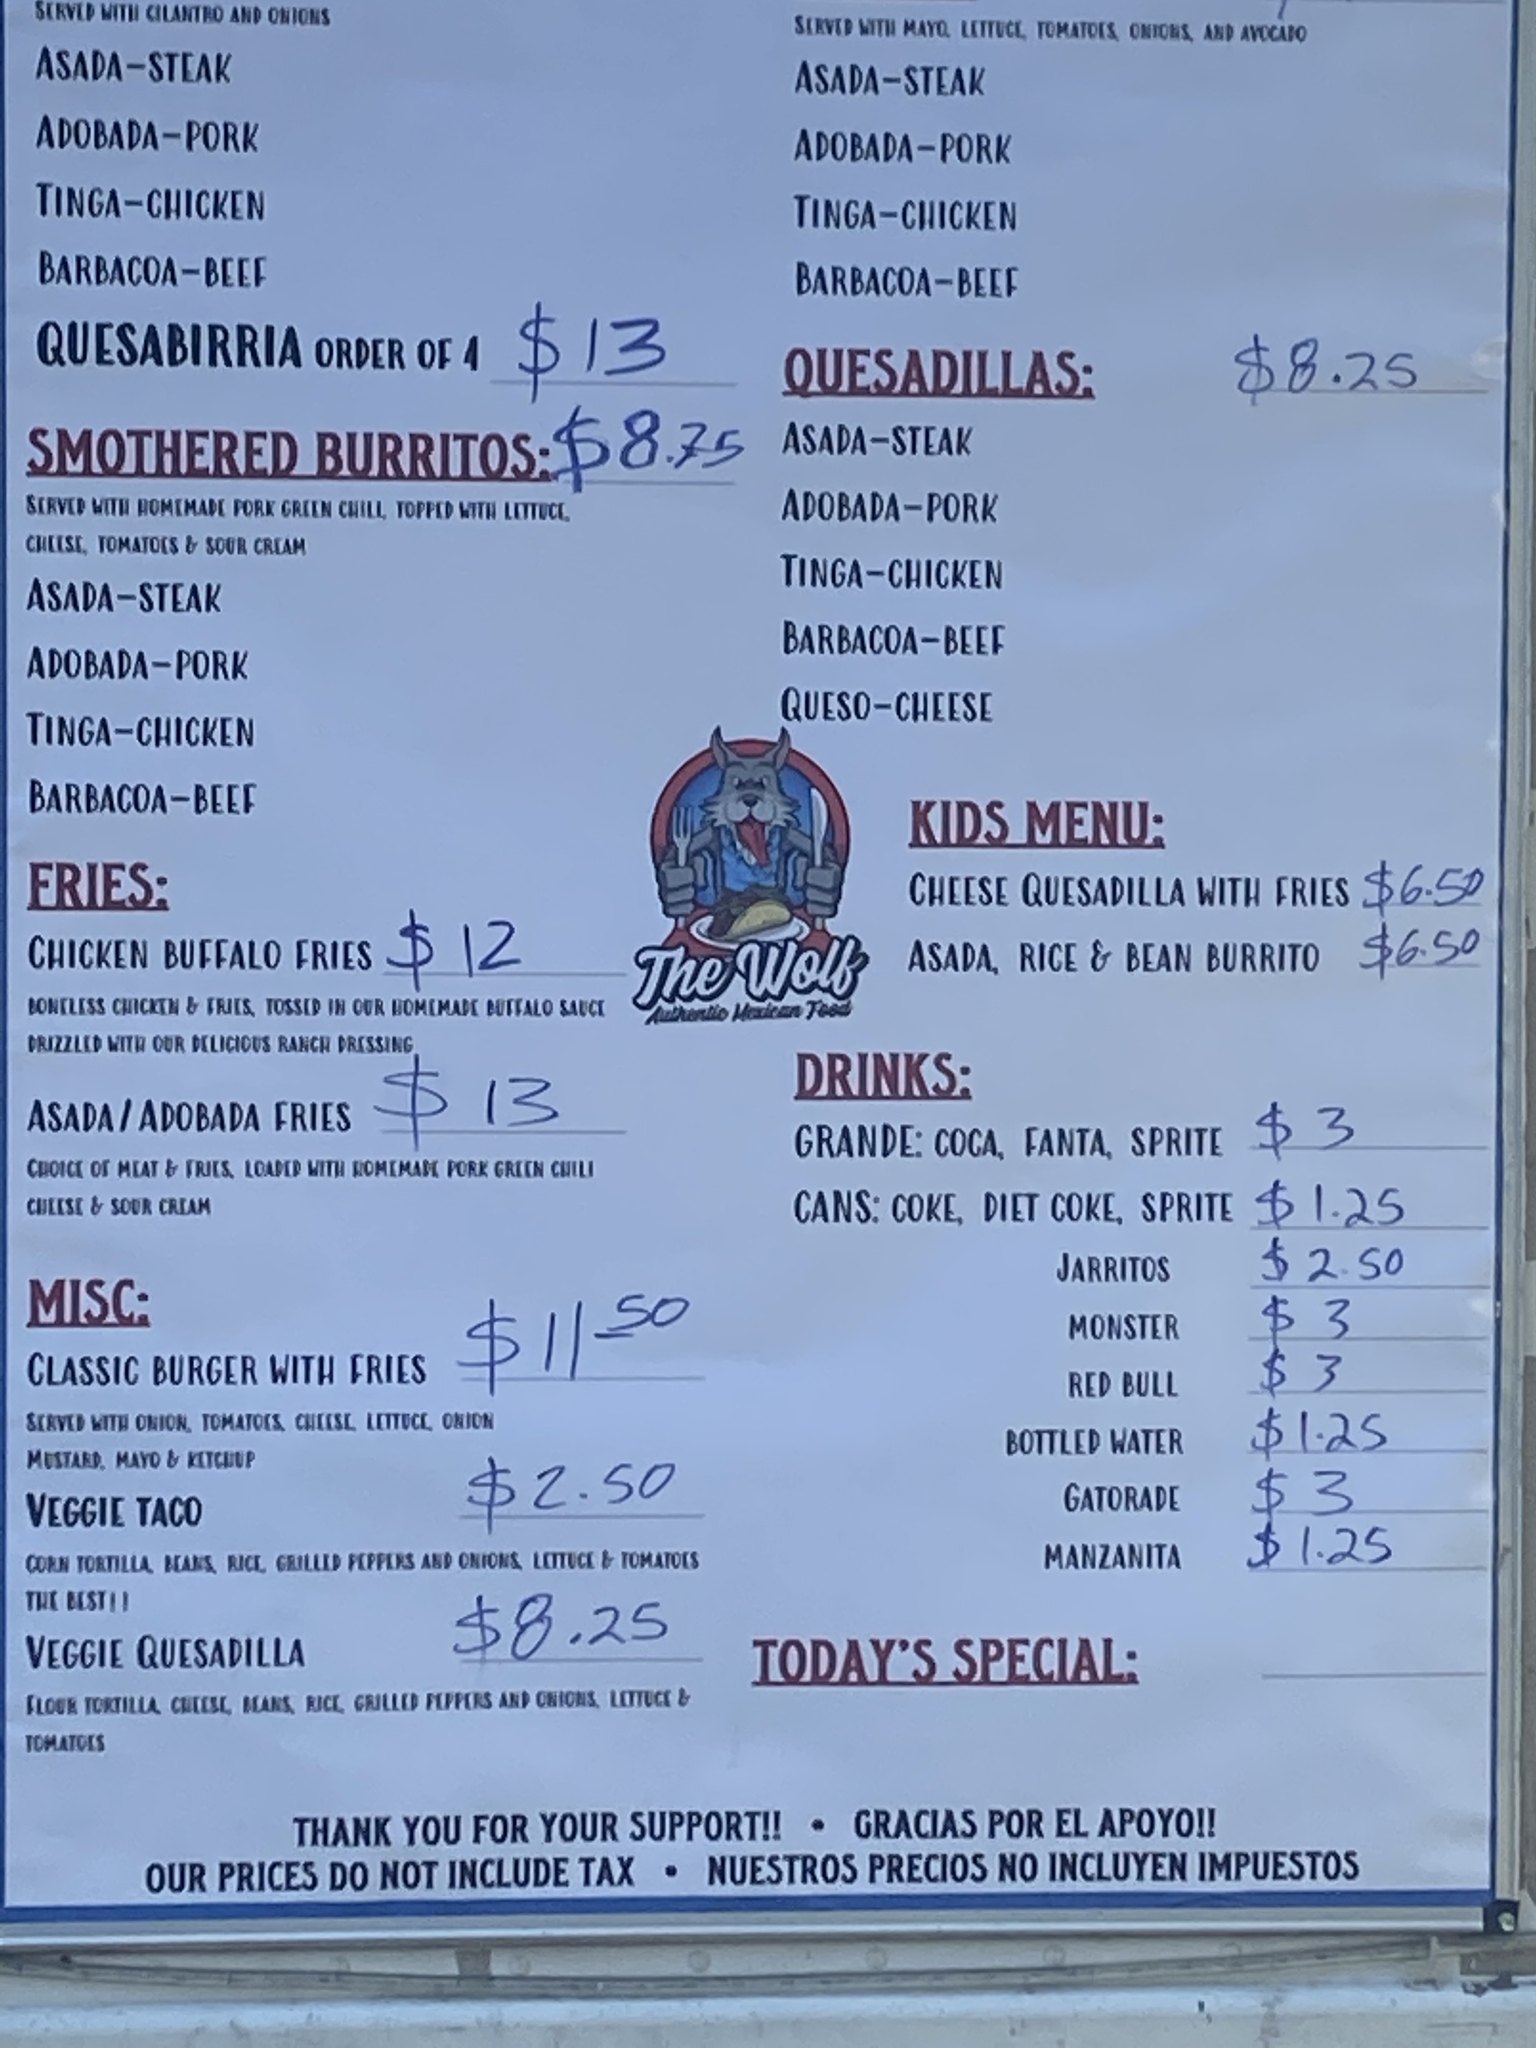 SERVED WITH CILANTRO AND ONIONS
ASADA-STEAK
ADOBADA-PORK
TINGA-CHICKEN
BARBACOA-BEEF
QUESABIRRIA ORDER OF 4 $13
SMOTHERED BURRITOS: $8.75
SERVED WITH HOMEMADE PORK GREEN CHILI, TOPPED WITH LETTUCE,
CHEESE, TOMATOES & SOUR CREAM
ASADA-STEAK
ADOBADA-PORK
TINGA-CHICKEN
BARBACOA-BEEF
FRIES:
CHICKEN BUFFALO FRIES $12
BONELESS CHICKEN & FRIES, TOSSED IN OUR HOMEMADE BUFFALO SAUCE
DRIZZLED WITH OUR DELICIOUS RANCH DRESSING
ASADA/ADOBADA FRIES $13
CHOICE OF MEAT & FRIES, LOADED WITH HOMEMADE PORK GREEN CHILI
CHEESE & SOUR CREAM
MISC:
CLASSIC BURGER WITH FRIES $11.50
SERVED WITH ONION, TOMATOES, CHEESE, LETTUCE, ONION
MUSTARD, MAYO & KETCHUP
VEGGIE TACO $2.50
CORN TORTILLA, BEANS, RICE, GRILLED PEPPERS AND ONIONS, LETTUCE & TOMATOES
THE BEST!!
VEGGIE QUESADILLA $8.25
FLOUR TORTILLA, CHEESE, BEANS, RICE, GRILLED PEPPERS AND ONIONS, LETTUCE &
TOMATOES
SERVED WITH MAYO, LETTUCE, TOMATOES, ONIONS, AND AVOCADO
ASADA-STEAK
ADOBADA-PORK
TINGA-CHICKEN
BARBACOA-BEEF
QUESADILLAS: $8.25
ASADA-STEAK
ADOBADA-PORK
TINGA-CHICKEN
BARBACOA-BEEF
QUESO-CHEESE
The Wolf
Authentic Mexican Food
KIDS MENU:
CHEESE QUESADILLA WITH FRIES $6.50
ASADA, RICE & BEAN BURRITO $6.50
DRINKS:
GRANDE: COCA, FANTA, SPRITE $3
CANS: COKE, DIET COKE, SPRITE $1.25
JARRITOS $2.50
MONSTER $3
RED BULL $3
BOTTLED WATER $1.25
GATORADE $3
MANZANITA $1.25
TODAY'S SPECIAL:
THANK YOU FOR YOUR SUPPORT!! • GRACIAS POR EL APOYO!!
OUR PRICES DO NOT INCLUDE TAX • NUESTROS PRECIOS NO INCLUYEN IMPUESTOS